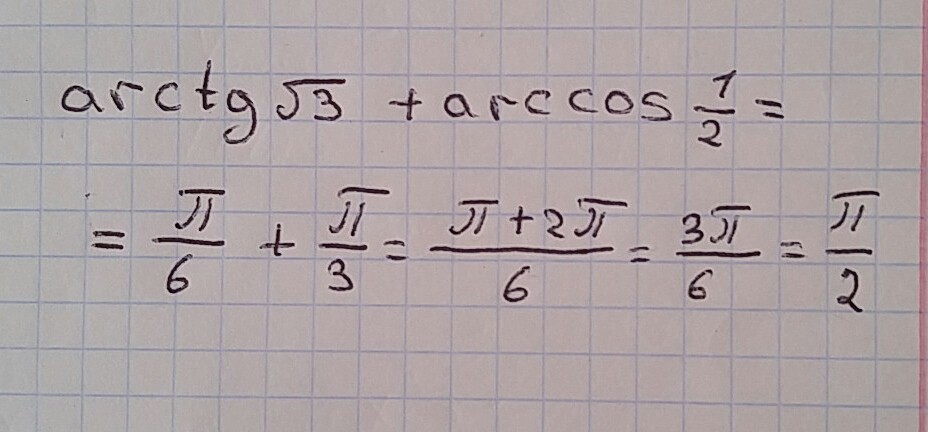 arctg √3 + arccos 1/2 =
= π/6 + π/3 = (π + 2π)/6 = 3π/6 = π/2